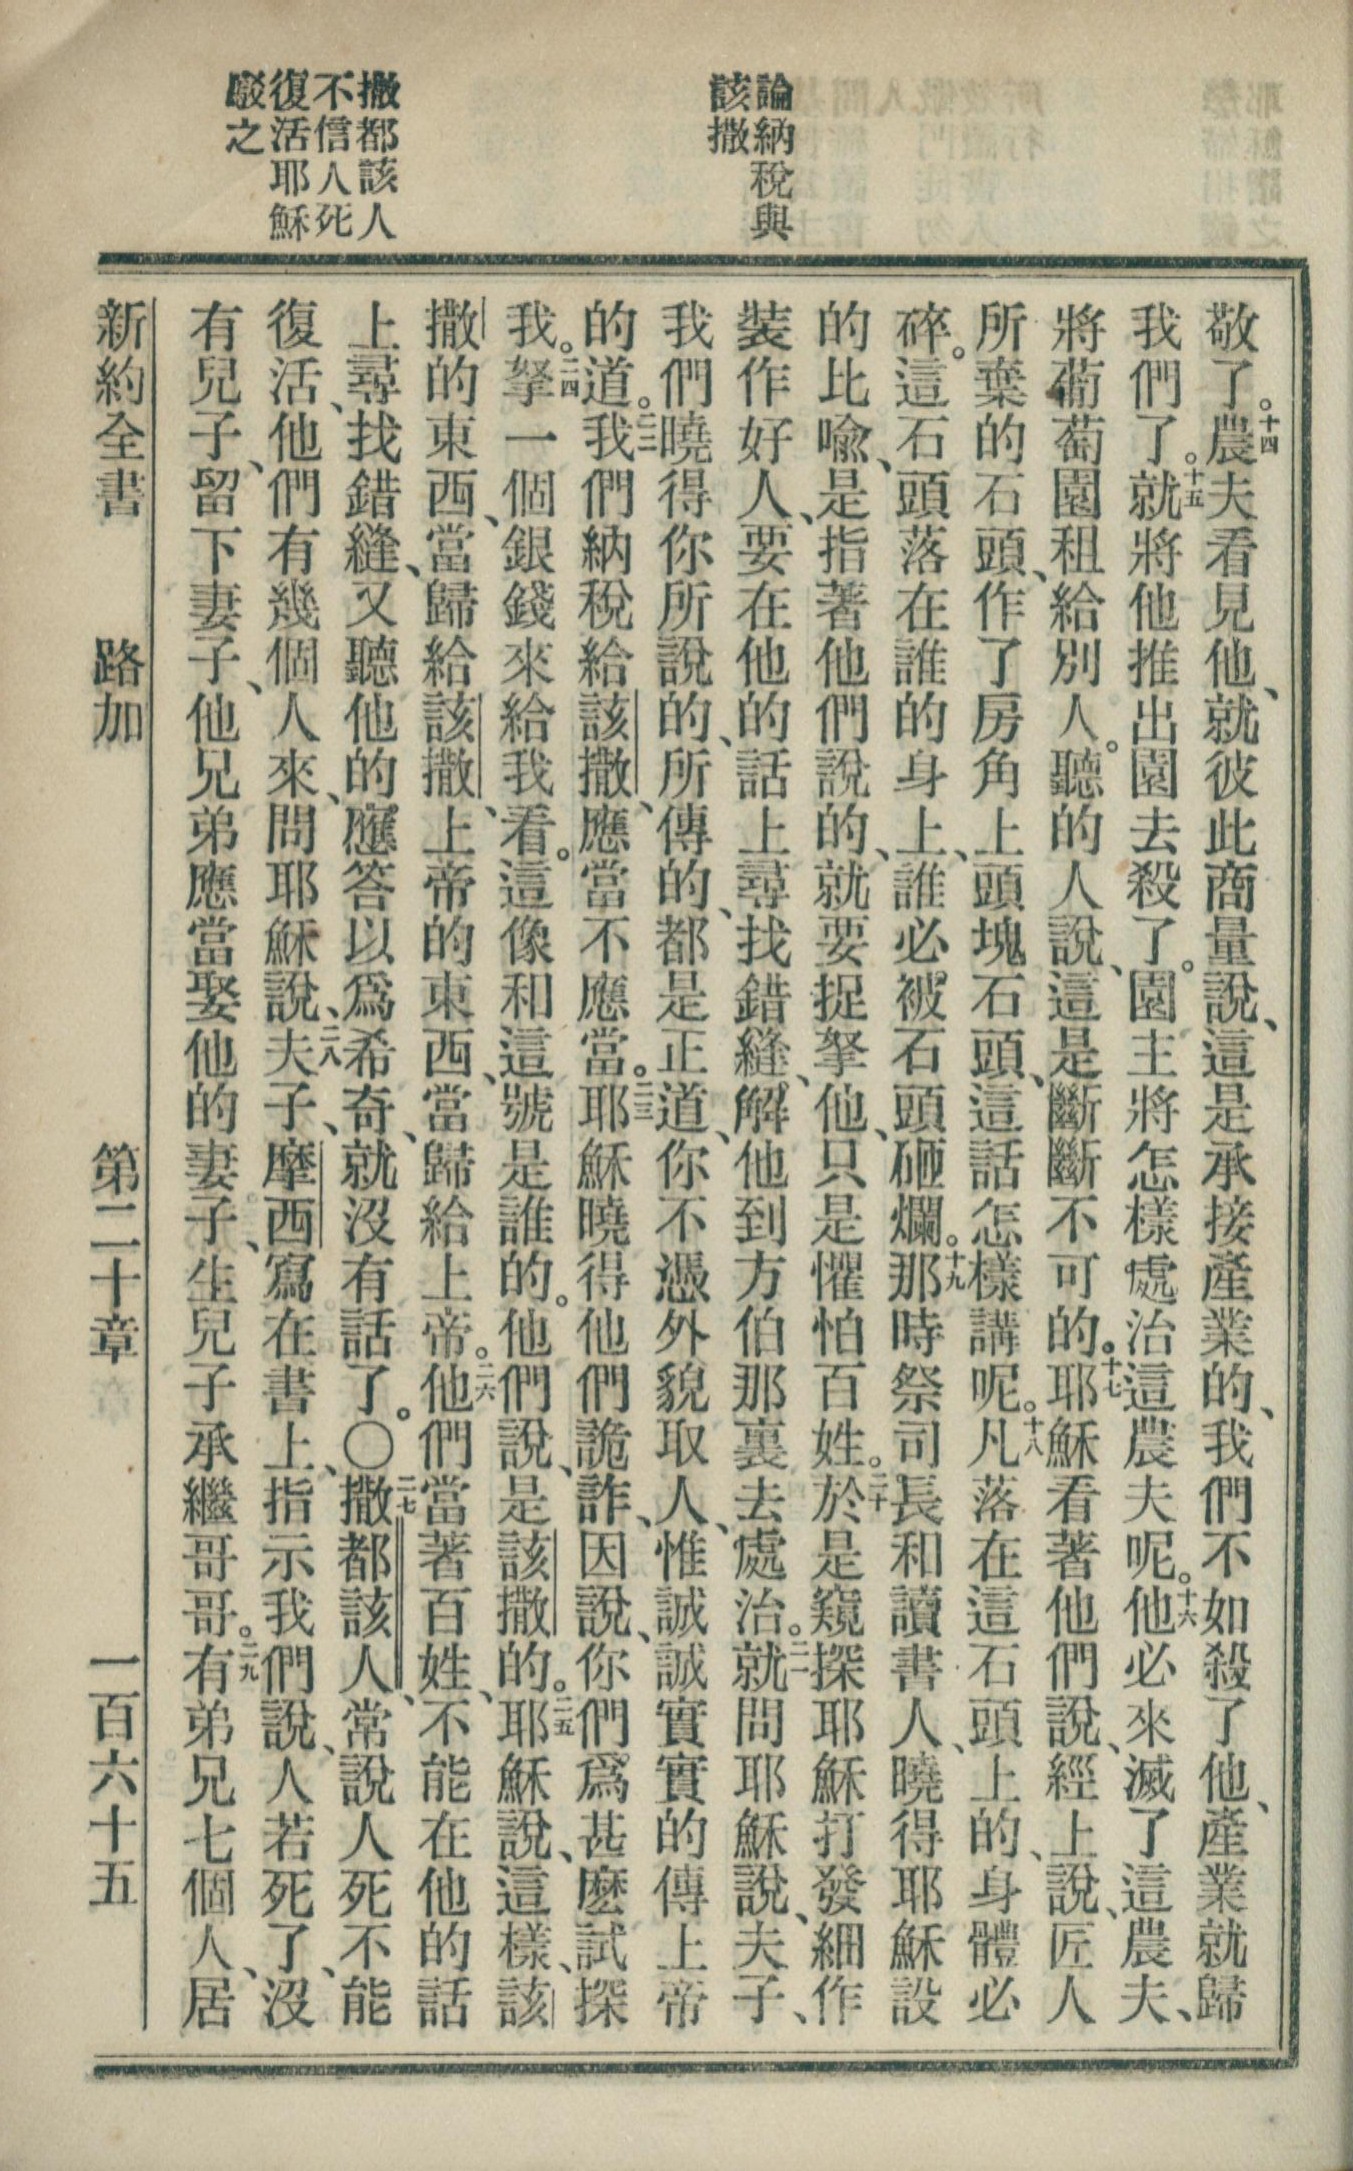 論納稅與
該撒
撒都該人
不信人死
復活耶穌
駁之
敬了。十四農夫看見他、就彼此商量說、這是承接產業的、我們不如殺了他、產業就歸
我們了。十五就將他推出園去殺了。園主將怎樣處治這農夫呢。十六他必來滅了這農夫、
將葡萄園租給別人。聽的人說、這是斷斷不可的。十七耶穌看著他們說、經上說、匠人
所棄的石頭、作了房角上頭塊石頭、這話怎樣講呢。十八凡落在這石頭上的、身體必
碎。這石頭落在誰的身上、誰必被石頭砸爛。十九那時祭司長和讀書人、曉得耶穌設
的比喩、是指著他們說的、就要捉拏他、只是懼怕百姓。二十於是窺探耶穌打發細作
裝作好人、要在他的話上尋找錯縫、解他到方伯那裏去處治。二一就問耶穌說、夫子、
我們曉得你所說的、所傳的、都是正道、你不憑外貌取人、惟誠誠實實的傳上帝
的道。二二我們納稅給該撒、應當不應當。二三耶穌曉得他們詭詐、因說、你們爲甚麽試探
我。二四拏一個銀錢來給我看。這像和這號是誰的。他們說、是該撒的。二五耶穌說、這樣、該
撒的東西、當歸給該撒、上帝的東西、當歸給上帝。二六他們當著百姓、不能在他的話
上尋找錯縫、又聽他的應答以爲希奇、就沒有話了。〇二七撒都該人、常說人死不能
復活、他們有幾個人來、問耶穌說、二八夫子、摩西寫在書上、指示我們說、人若死了、沒
有兒子、留下妻子、他兄弟應當娶他的妻子、生兒子承繼哥哥。二九有弟兄七個人、居
新約全書 路加 第二十章 一百六十五